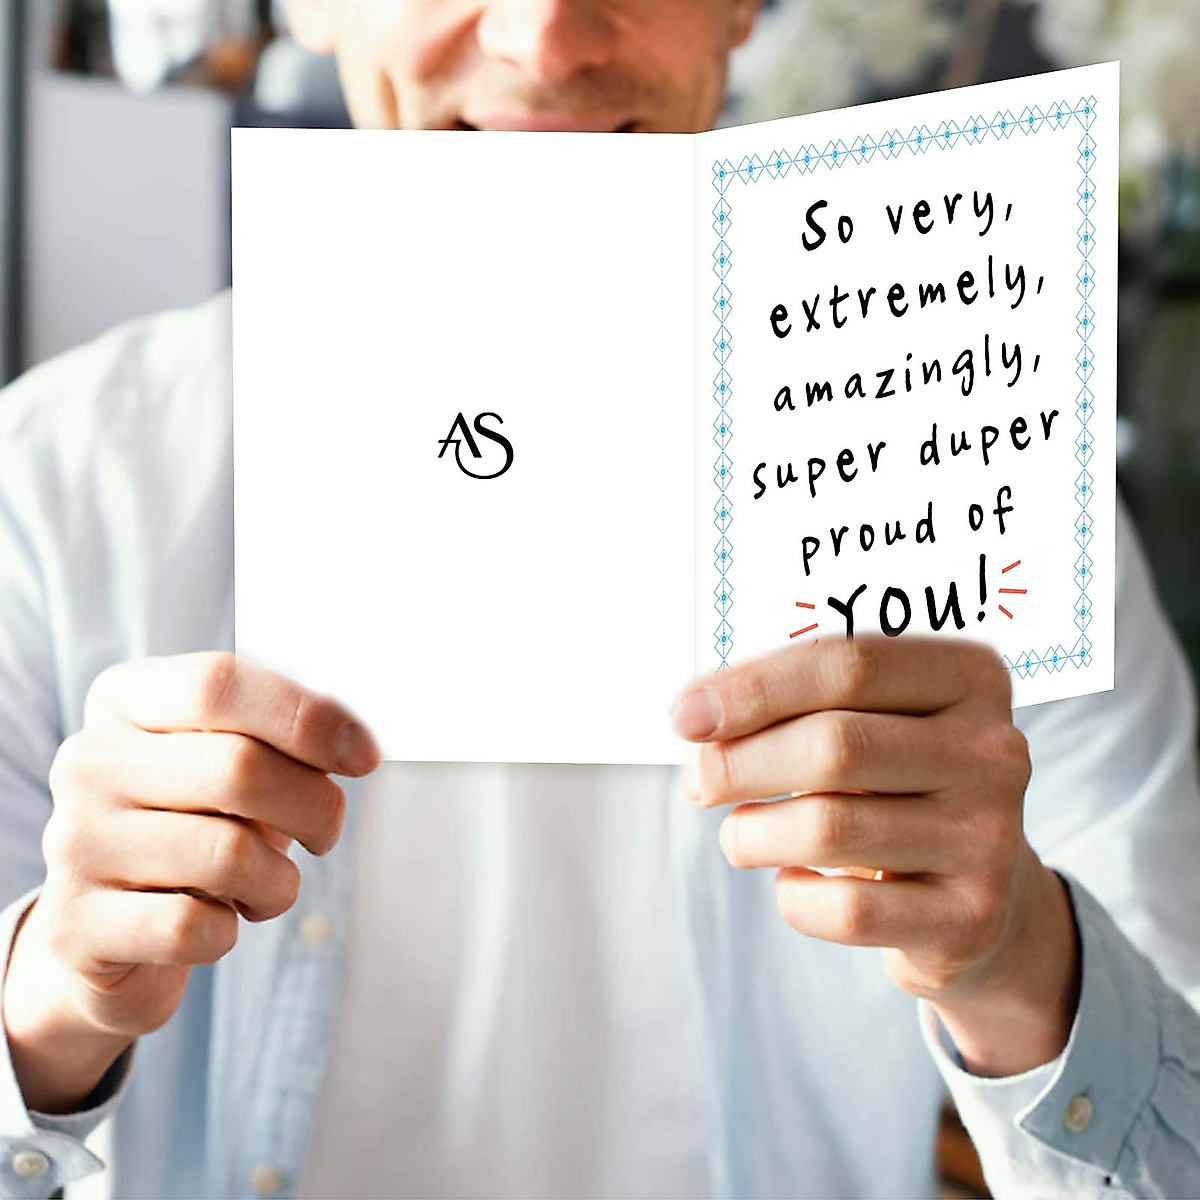 AS
So very,
extremely,
amazingly,
super duper
proud of
YOU!